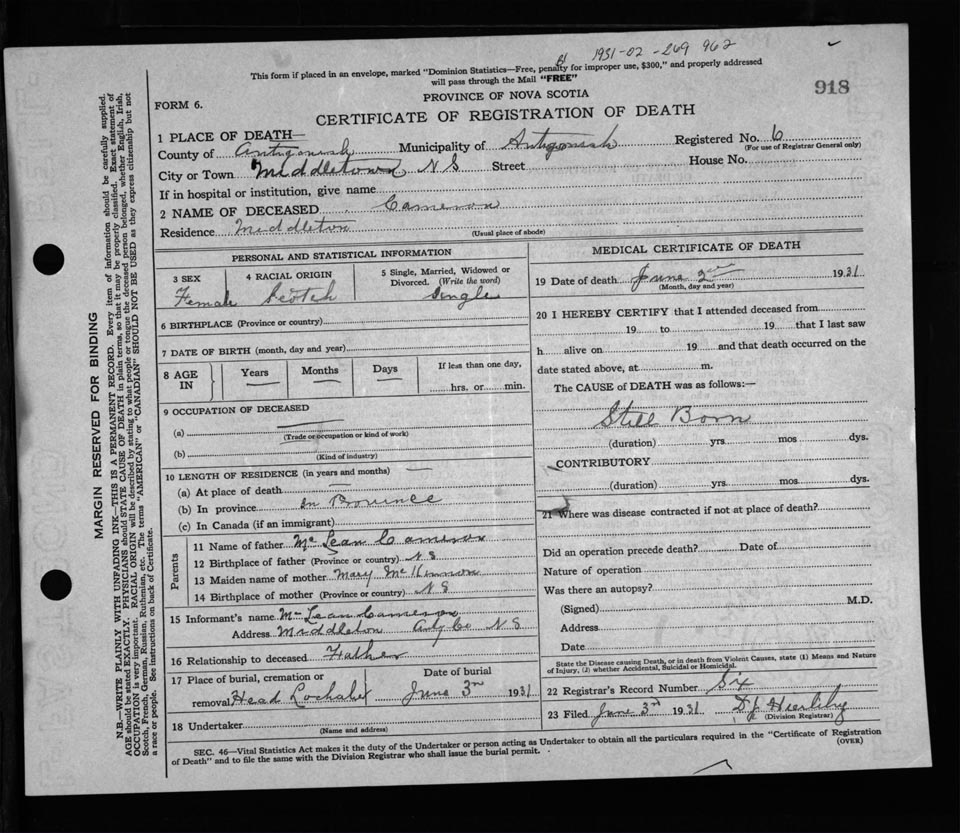 1931-02-269 962
This form if placed in an envelope, marked "Dominion Statistics—Free, penalty for improper use, $300," and properly addressed
will pass through the Mail "FREE"
918
PROVINCE OF NOVA SCOTIA
FORM 6.
CERTIFICATE OF REGISTRATION OF DEATH
1 PLACE OF DEATH—
County of Antigonish Municipality of Antigonish Registered No. 6
(For use of Registrar General only)
City or Town Middletown N S Street House No.
If in hospital or institution, give name
2 NAME OF DECEASED Cameron
Residence Middleton
(Usual place of abode)
PERSONAL AND STATISTICAL INFORMATION
3 SEX 4 RACIAL ORIGIN 5 Single, Married, Widowed or
Divorced. (Write the word)
Female Scotch Single
6 BIRTHPLACE (Province or country)
7 DATE OF BIRTH (month, day and year)
8 AGE IN Years Months Days If less than one day,
hrs. or min.
9 OCCUPATION OF DECEASED
(a)
(Trade or occupation or kind of work)
(b)
(Kind of industry)
10 LENGTH OF RESIDENCE (in years and months)
(a) At place of death
(b) In province in Province
(c) In Canada (if an immigrant)
Parents
11 Name of father McLean Cameron
12 Birthplace of father (Province or country) N S
13 Maiden name of mother Mary McKinnon
14 Birthplace of mother (Province or country) N S
15 Informant's name McLean Cameron
Address Middleton N S
16 Relationship to deceased Father
17 Place of burial, cremation or Date of burial
removal Head Lochaber June 3rd 1931
18 Undertaker
(Name and address)
MEDICAL CERTIFICATE OF DEATH
19 Date of death June 2nd 1931
(Month, day and year)
20 I HEREBY CERTIFY that I attended deceased from
19 to 19 that I last saw
h alive on 19 and that death occurred on the
date stated above, at m.
The CAUSE of DEATH was as follows:—
Still Born
(duration) yrs. mos dys.
CONTRIBUTORY
(duration) yrs. mos. dys.
21 Where was disease contracted if not at place of death?
Did an operation precede death? Date of
Nature of operation
Was there an autopsy?
(Signed) M.D.
Address
Date
State the Disease causing Death, or in death from Violent Causes, state (1) Means and Nature
of Injury, (2) whether Accidental, Suicidal or Homicidal.
22 Registrar's Record Number
23 Filed June 3rd 1931
(Division Registrar)
SEC. 46—Vital Statistics Act makes it the duty of the Undertaker or person acting as Undertaker to obtain all the particulars required in the "Certificate of Registration
of Death" and to file the same with the Division Registrar who shall issue the burial permit.
(OVER)
MARGIN RESERVED FOR BINDING
N.B.—WRITE PLAINLY WITH UNFADING INK—THIS IS A PERMANENT RECORD. Every item of information should be carefully supplied.
AGE should be stated EXACTLY. PHYSICIANS should STATE CAUSE OF DEATH in plain terms, so that it may be properly classified. Exact statement of
OCCUPATION is very important. RACIAL ORIGIN will be described by stating to what people or tongue the deceased person belonged, whether English, Irish,
Scotch, French, German, Russian, Ruthenian, etc. The terms "AMERICAN" or "CANADIAN" SHOULD NOT BE USED as they express citizenship but not
a race or people. See instructions on back of Certificate.